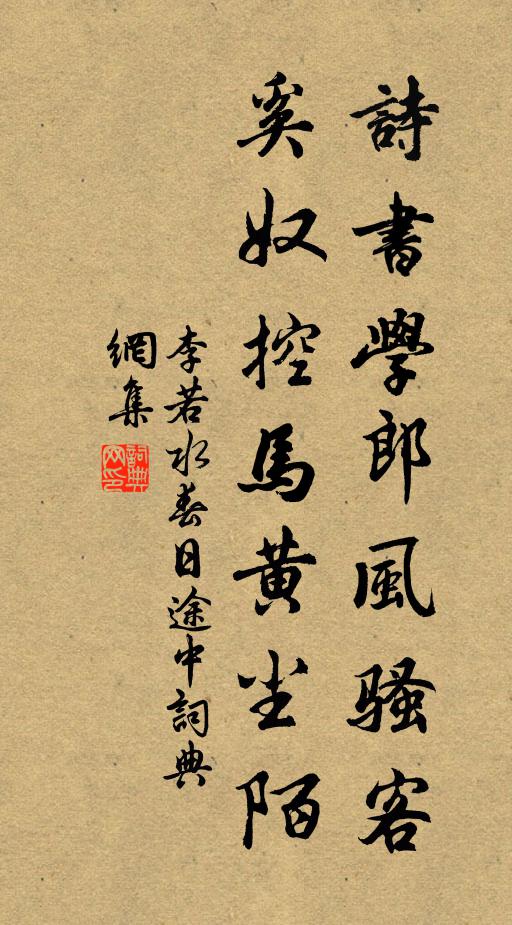 詩書學郎風騷客
奚奴控馬黃尘陌
李若水春日途中詞典
網集
詞典
网印